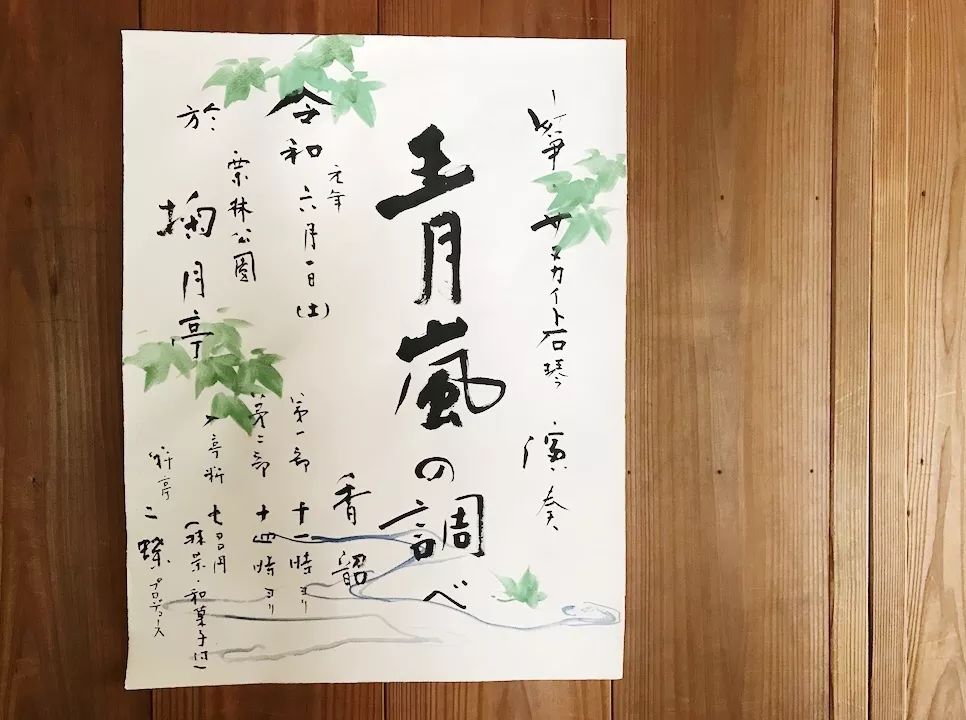 箏 サヌカイト石琴 演奏
青嵐の調べ
香韶
令和元年
六月一日(土)
第一部 十一時ヨリ
第二部 十四時ヨリ
於 栗林公園
掬月亭
入亭料 七百円
(抹茶・和菓子付)
料亭 二蝶 プロデュース